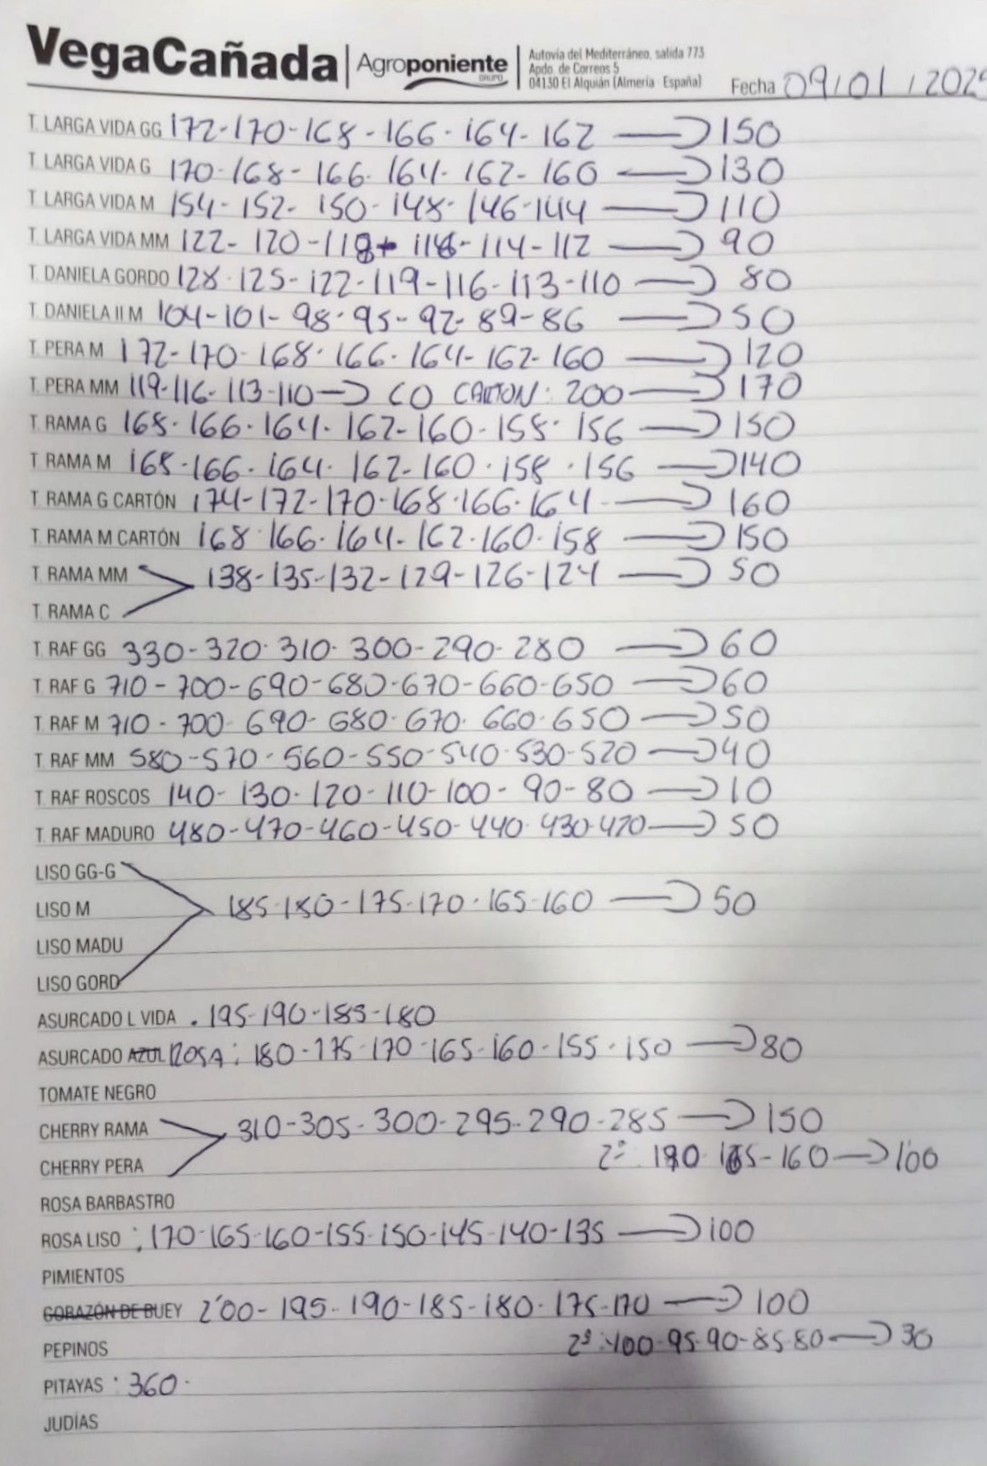 VegaCañada | Agroponiente GRUPO
Autovía del Mediterráneo, salida 773
Apdo. de Correos 5
04130 El Alquián (Almería España)
Fecha 09/01/202
T. LARGA VIDA GG 172-170-168-166-164-162 → 150
T. LARGA VIDA G 170-168-166-164-162-160 → 130
T. LARGA VIDA M 154-152-150-148-146-144 → 110
T. LARGA VIDA MM 122-120-118-116-114-112 → 90
T. DANIELA GORDO 128-125-122-119-116-113-110 → 80
T. DANIELA II M 104-101-98-95-92-89-86 → 50
T. PERA M 172-170-168-166-164-162-160 → 120
T. PERA MM 119-116-113-110 → 60 CARTON: 200 → 170
T. RAMA G 168-166-164-162-160-158-156 → 150
T. RAMA M 168-166-164-162-160-158-156 → 140
T. RAMA G CARTÓN 174-172-170-168-166-164 → 160
T. RAMA M CARTÓN 168-166-164-162-160-158 → 150
T. RAMA MM 138-135-132-129-126-124 → 50
T. RAMA C
T. RAF GG 330-320-310-300-290-280 → 60
T. RAF G 710-700-690-680-670-660-650 → 60
T. RAF M 710-700-690-680-670-660-650 → 50
T. RAF MM 580-570-560-550-540-530-520 → 40
T. RAF ROSCOS 140-130-120-110-100-90-80 → 10
T. RAF MADURO 480-470-460-450-440-430-420 → 50
LISO GG-G
LISO M 185-180-175-170-165-160 → 50
LISO MADU
LISO GORD
ASURCADO L VIDA . 195-190-185-180
ASURCADO AZUL ROSA: 180-175-170-165-160-155-150 → 80
TOMATE NEGRO
CHERRY RAMA 310-305-300-295-290-285 → 150
CHERRY PERA 2ª: 165-160 → 100
ROSA BARBASTRO
ROSA LISO : 170-165-160-155-150-145-140-135 → 100
PIMIENTOS
CORAZÓN DE BUEY 2'00-195-190-185-180-175-170 → 100
PEPINOS 2ª: 100-95-90-85-80 → 30
PITAYAS : 360-
JUDÍAS